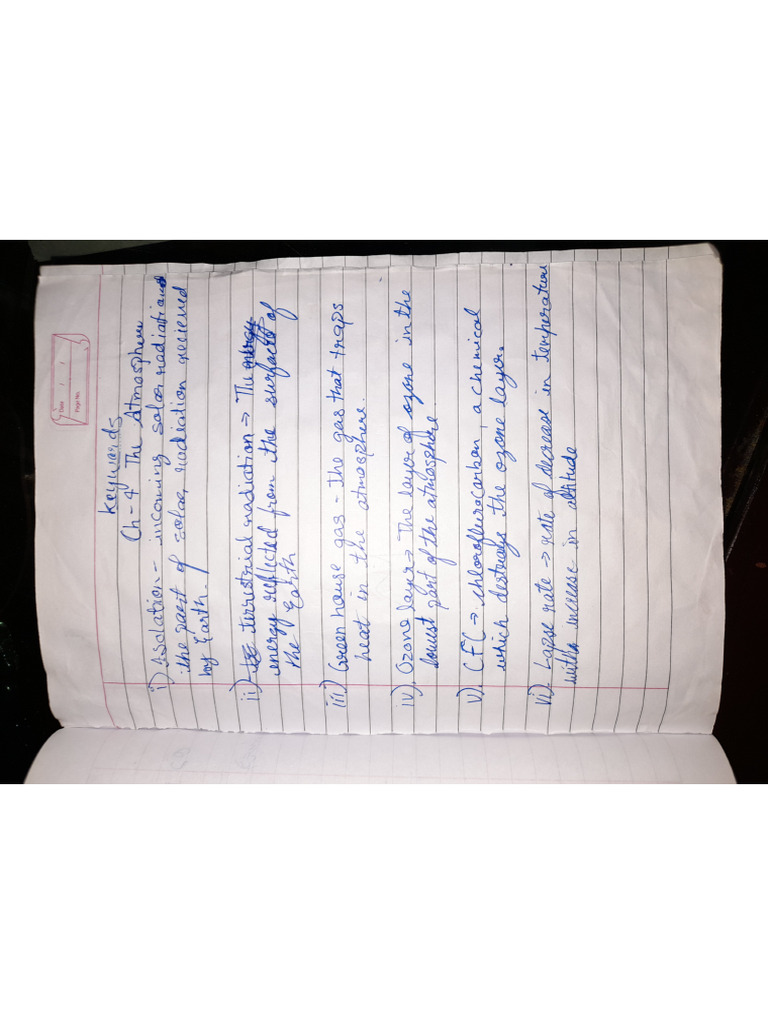 Date / /
Page No.
Keywords
Ch-4 The Atmosphere
i) Asolation - incoming solar radiation and
the part of solar radiation recieved
by Earth.
ii) terrestrial radiation → The energy
energy reflected from the surface of
the Earth
iii) Green house gas - the gas that traps
heat in the atmosphere.
iv) Ozone layer → The layer of ozone in the
lowest part of the atmosphere.
v) CFC → chloroflurocarbon, a chemical
which destroys the ozone layer.
vi) Lapse rate → rate of decrease in temperature
with increase in altitude